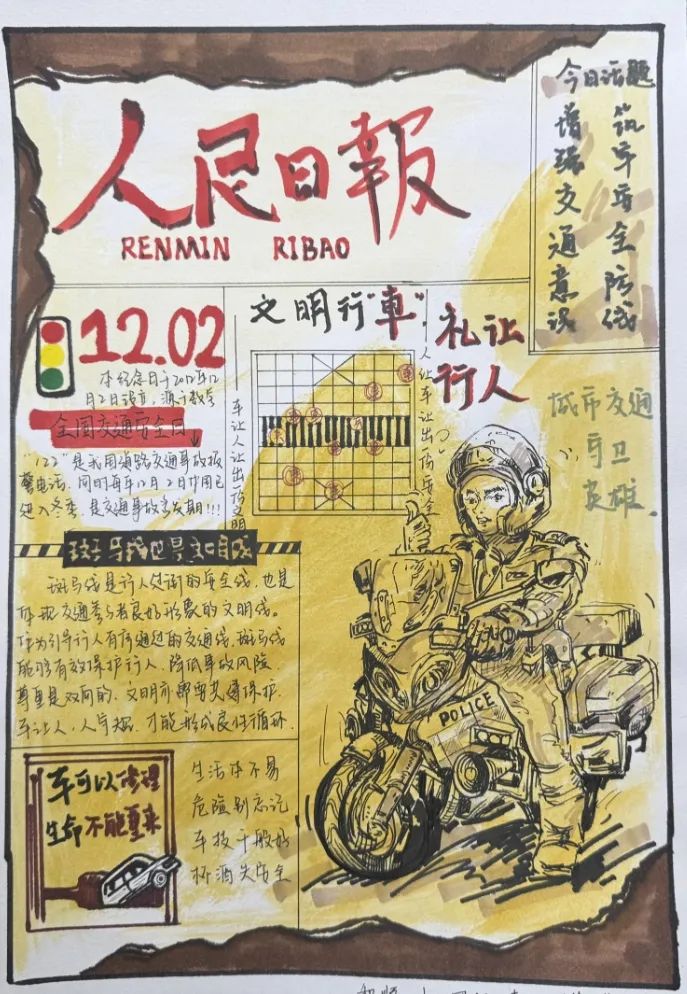 人民日報
RENMIN RIBAO
今日话题
筑牢安全防线
增强交通意识
12.02
本纪念日于2012年12
月2日设立，源于数字
全国交通安全日
"122"是我国道路交通事故报
警电话，同时每年12月2日中国已
进入冬季，是交通事故高发期!!!
文明行"車"
礼让
行人
车让人让出一份文明
人让车让出一份安全
車
車
車
車
車
車
車
城市交通
守卫
英雄
斑马线是行人过街的安全线，也是
体现交通参与者良好形象的文明线。
作为引导行人有序通过的交通线，斑马线
能够有效保护行人，降低事故风险
尊重是双向的，文明亦需要共遵保护
车让人，人守规，才能形成良性循环
POLICE
车可以修理
生命不能重来
生活本不易
危险别忘记
车技千般好
杯酒失安全